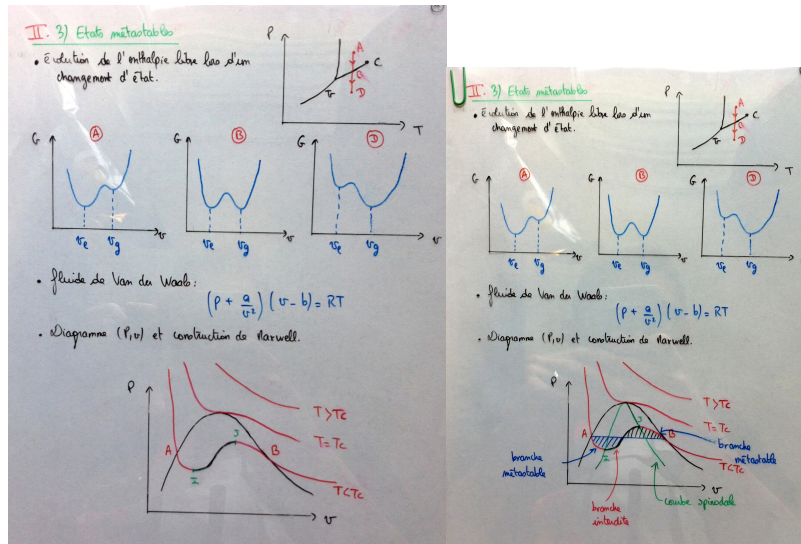 II. 3) Etats métastables
• Evolution de l'enthalpie libre lors d'un
changement d'état.
P
A
C
B
D
T
G
A
G
B
G
D
v
v
v
vℓ
vg
vℓ
vg
vℓ
vg
• Fluide de Van der Waals :
(P + a/v²)(v - b) = RT
• Diagramme (P,v) et construction de Maxwell.
P
T>Tc
T=Tc
T<Tc
A
J
B
I
v
II. 3) Etats métastables
• Evolution de l'enthalpie libre lors d'un
changement d'état.
P
A
C
B
D
T
G
A
G
B
G
D
v
v
v
vℓ
vg
vℓ
vg
vℓ
vg
• Fluide de Van der Waals :
(P + a/v²)(v - b) = RT
• Diagramme (P,v) et construction de Maxwell.
P
T>Tc
T=Tc
A
J
B
branche
métastable
branche
métastable
I
T<Tc
v
courbe spinodale
branche
interdite